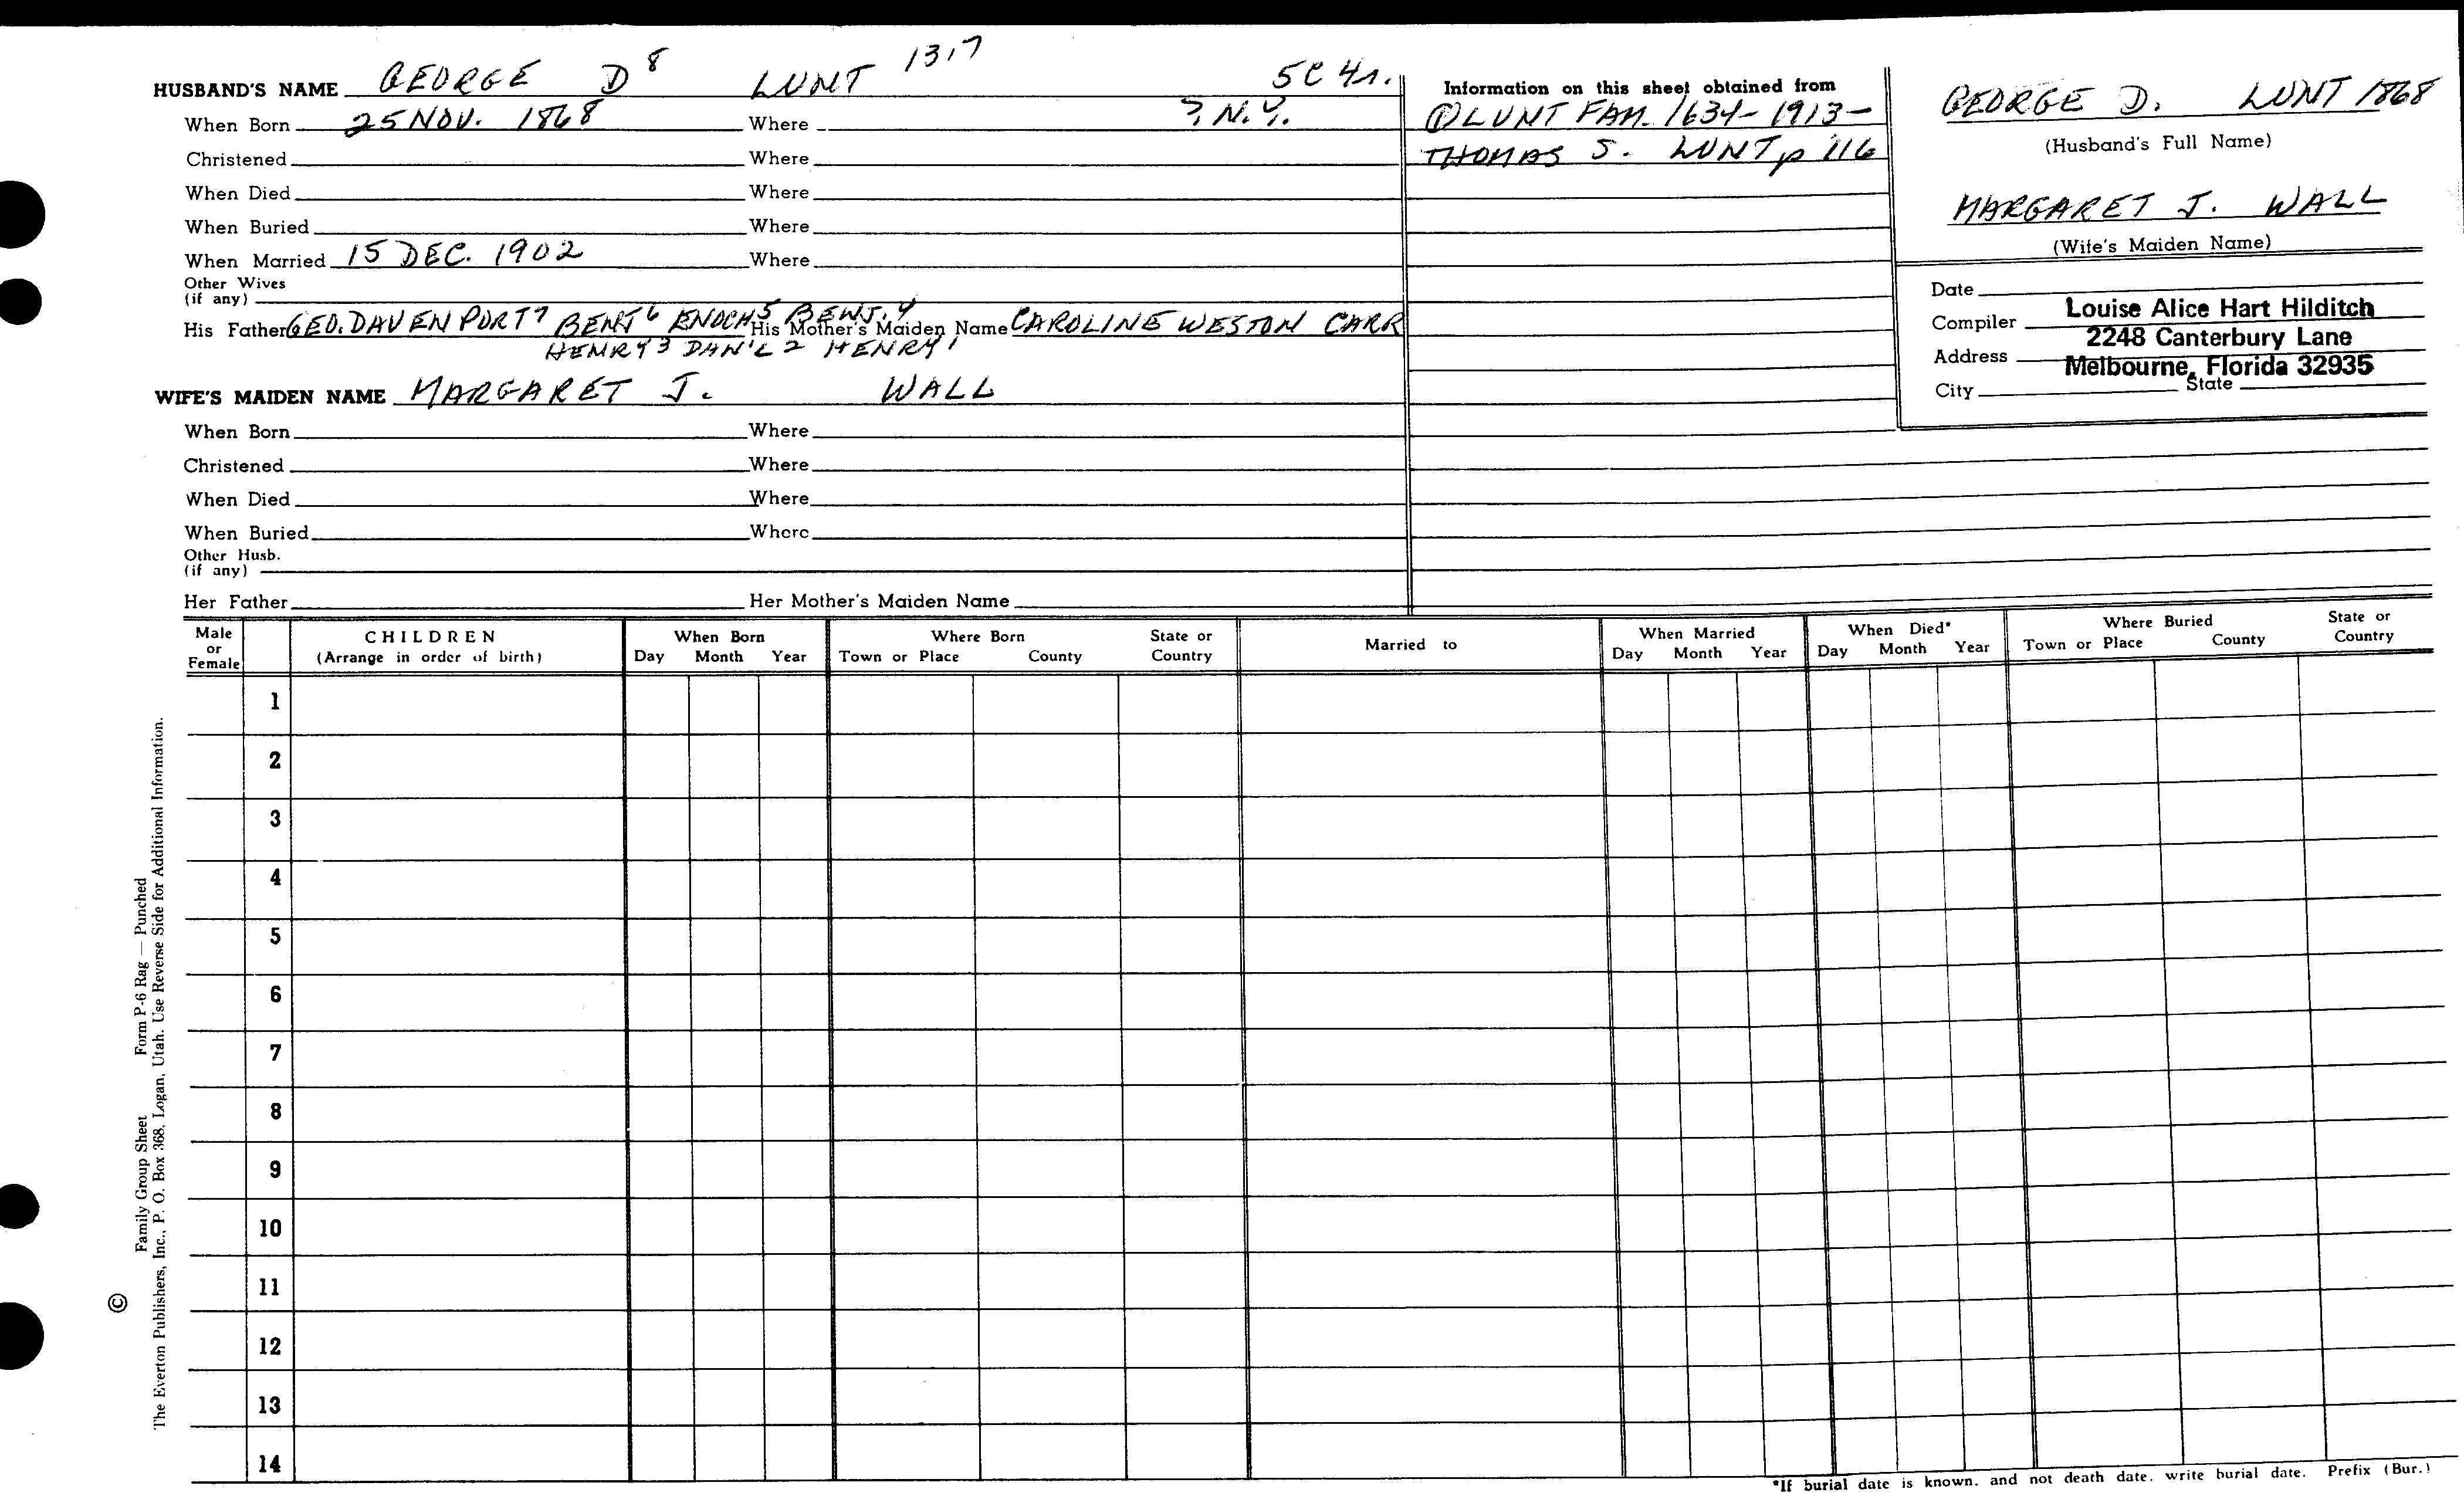 HUSBAND'S NAME GEORGE D 8 LUNT 1317 5C 4r.
When Born 25 NOV. 1868 Where ? N.Y.
Christened Where
When Died Where
When Buried Where
When Married 15 DEC. 1902 Where
Other Wives
(if any)
His Father GEO. DAVENPORT 7 BENJ 6 ENOCH 5 BENJ. 4 His Mother's Maiden Name CAROLINE WESTON CARR
HENRY 3 DAN'L 2 HENRY 1
WIFE'S MAIDEN NAME MARGARET J. WALL
When Born Where
Christened Where
When Died Where
When Buried Where
Other Husb.
(if any)
Her Father Her Mother's Maiden Name
Information on this sheet obtained from
① LUNT FAM. 1634-1913-
THOMAS S. LUNT p 116
GEORGE D. LUNT 1868
(Husband's Full Name)
MARGARET J. WALL
(Wife's Maiden Name)
Date
Compiler Louise Alice Hart Hilditch
2248 Canterbury Lane
Address Melbourne, Florida 32935
City State
Male or Female
CHILDREN
(Arrange in order of birth)
When Born
Day Month Year
Where Born
Town or Place County State or Country
Married to
When Married
Day Month Year
When Died*
Day Month Year
Where Buried
Town or Place County State or Country
1
2
3
4
5
6
7
8
9
10
11
12
13
14
*If burial date is known, and not death date, write burial date. Prefix (Bur.)
©
Family Group Sheet Form P-6 Rag — Punched
The Everton Publishers, Inc., P. O. Box 368, Logan, Utah. Use Reverse Side for Additional Information.